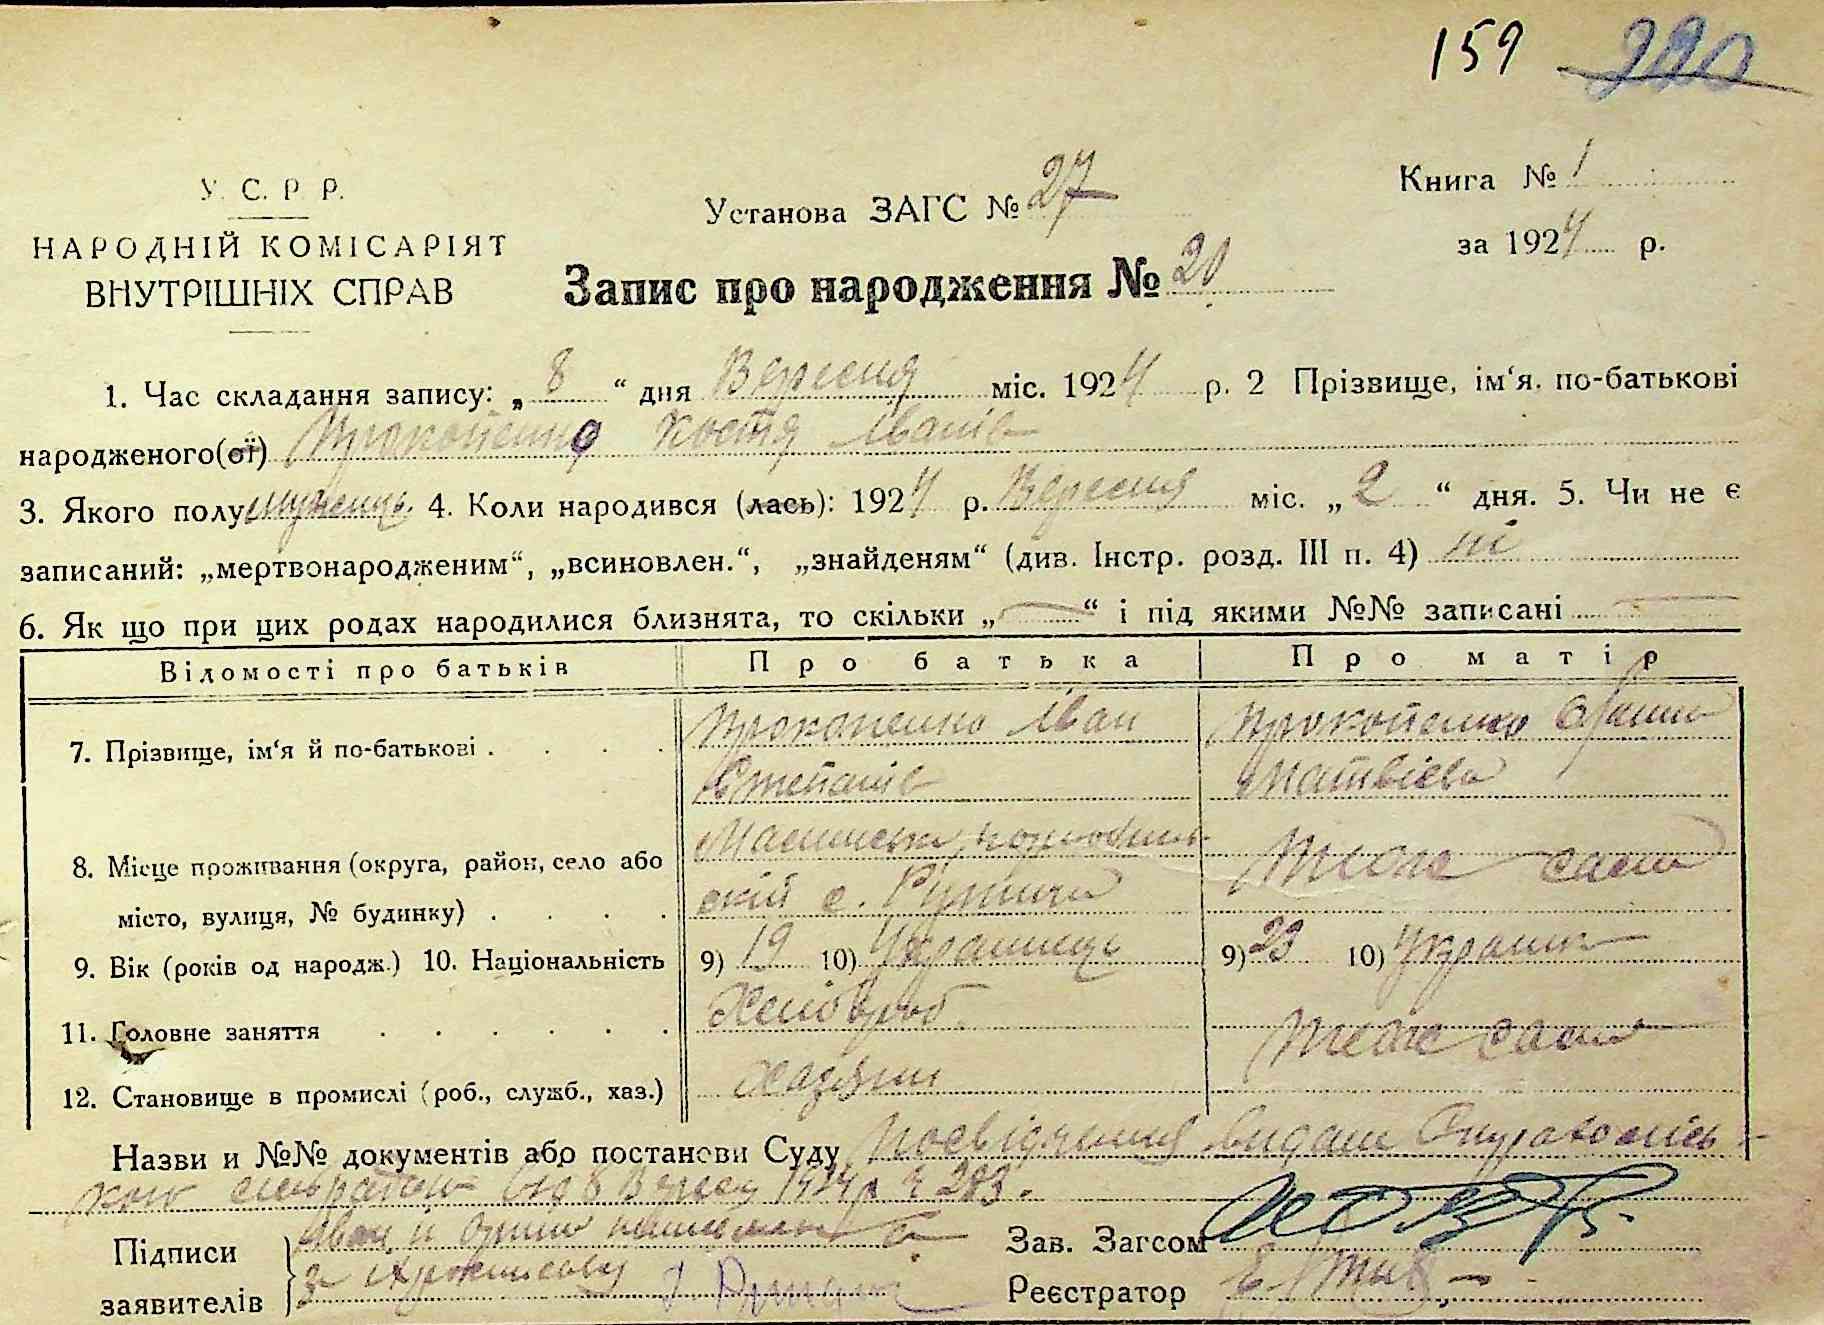 159 220
У. С. Р. Р.
НАРОДНІЙ КОМІСАРІЯТ
ВНУТРІШНІХ СПРАВ
Установа ЗАГС № 27
Запис про народження № 20
Книга № 1
за 1924 р.
1. Час складання запису: „ 8 “ дня Вересня міс. 1924 р. 2 Прізвище, ім‘я. по-батькові
народженого(ої) Прокопенко Костя Іванів
3. Якого полу 4. Коли народився (лась): 1924 р. Вересня міс. „ 2 “ дня. 5. Чи не є
записаний: „мертвонародженим“, „всиновлен.“, „знайденям“ (див. Інстр. розд. III п. 4) ні
6. Як що при цих родах народилися близнята, то скільки „ — “ і під якими №№ записані —
Відомості про батьків Про батька Про матір
7. Прізвище, ім‘я й по-батькові . . . .
Прокопенко Іван
Степанів
Прокопенко
Матвієва
8. Місце проживання (округа, район, село або
місто, вулиця, № будинку) . . . .
ский с.
тож сами
9. Вік (років од народж.) 10. Національність 9) 19 10) Украінець 9) 23 10) Украін
11. Головне заняття . . . . . . Хлібороб
тож сами
12. Становище в промислі (роб., служб., хаз.) Хазяїн
Назви и №№ документів або постанови Суду Посвідчення видане
сільрадою від 8 Вересн 1924 р № 283.
Підписи
заявителів
Іван й
за
Зав. Загсом
Реєстратор